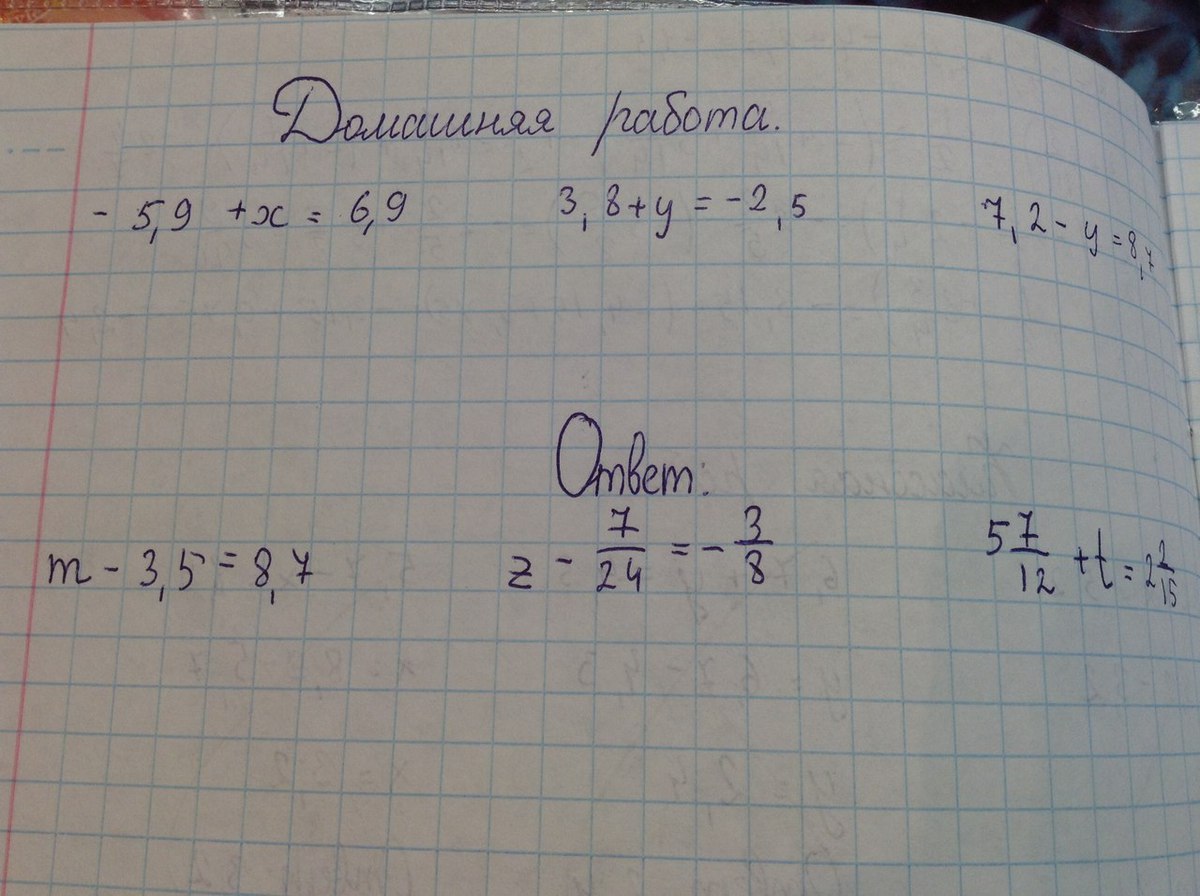 Домашняя работа.
- 5,9 + x = 6,9    3,8 + y = -2,5    7,2 - y = 8,7
Ответ:
m - 3,5 = 8,7    z - 7/24 = - 3/8    5 7/12 + t = 2 2/15